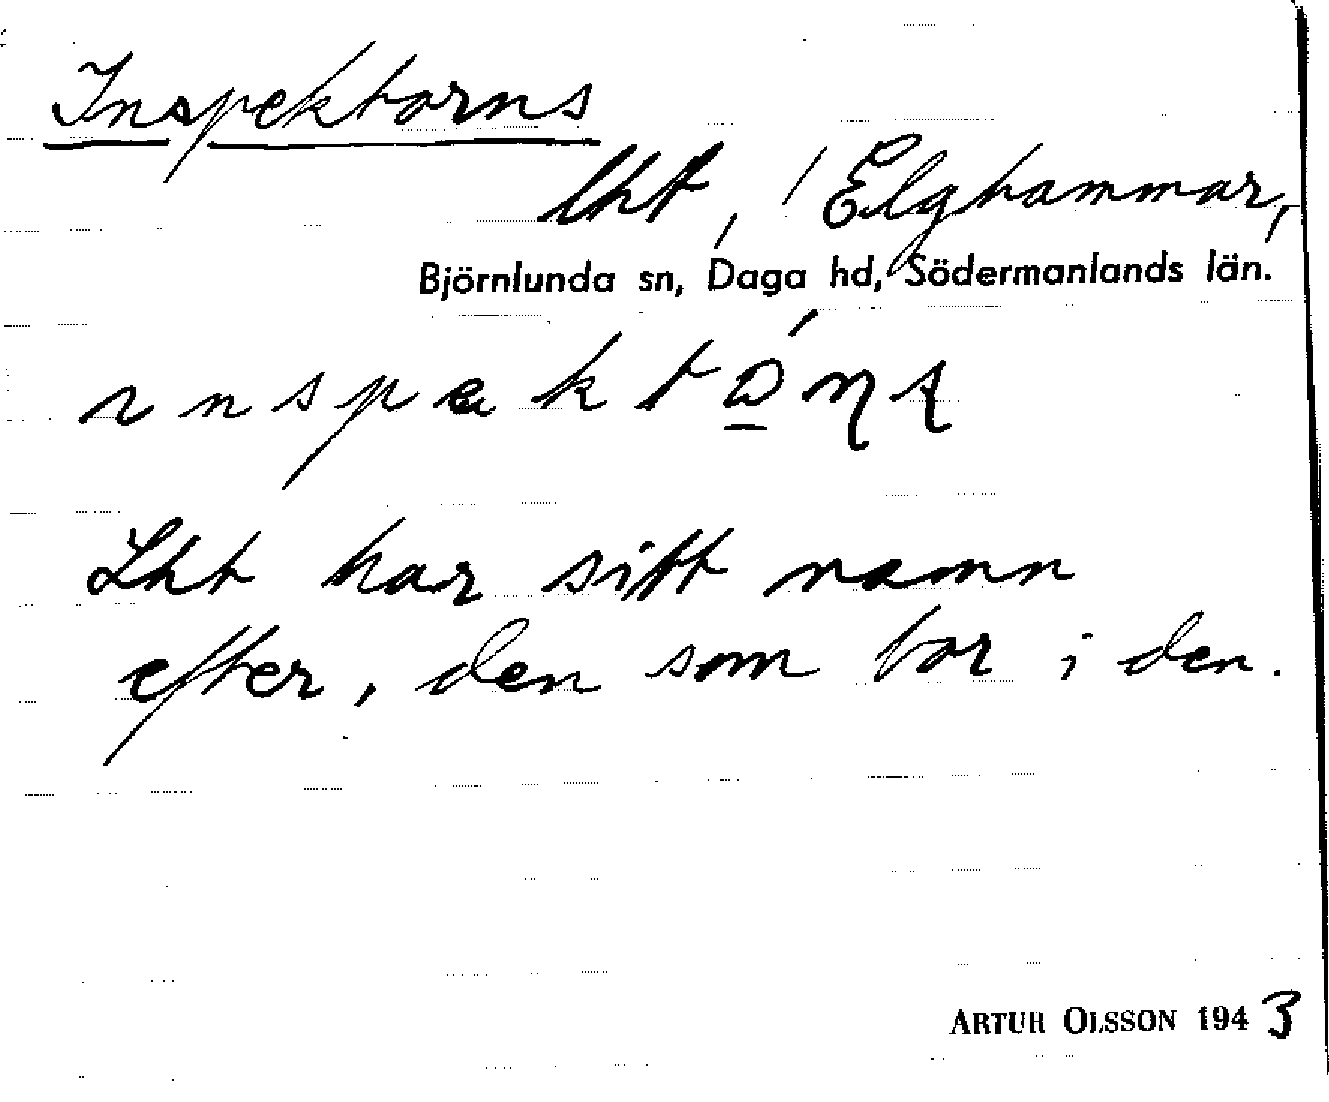 Inspektorns
lht, / Elghammar,
Björnlunda sn, Daga hd, Södermanlands län.
Lht har sitt namn
efter, den som bor i den.
ARTUR OLSSON 1943